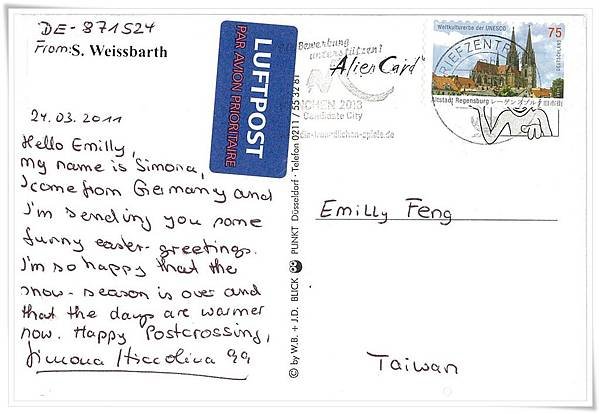 DE-871524
From: S. Weissbarth
24.03.2011
Hello Emilly,
my name is Simona,
I come from Germany and
I'm sending you some
funny easter-greetings.
I'm so happy that the
snow-season is over and
that the days are warmer
now. Happy Postcrossing,
Simona
LUFTPOST
PAR AVION PRIORITAIRE
© by W.B. + J.D. BLICK PUNKT Düsseldorf · Telefon 0211 / 55 32 81
Bewerbung
unterstützen!
MÜNCHEN 2018
Candidate City
"Alien Card"
BRIEFZENTRUM
Weltkulturerbe der UNESCO
75
DEUTSCHLAND
Altstadt Regensburg レーゲンスブルク旧市街
Emilly Feng
Taiwan